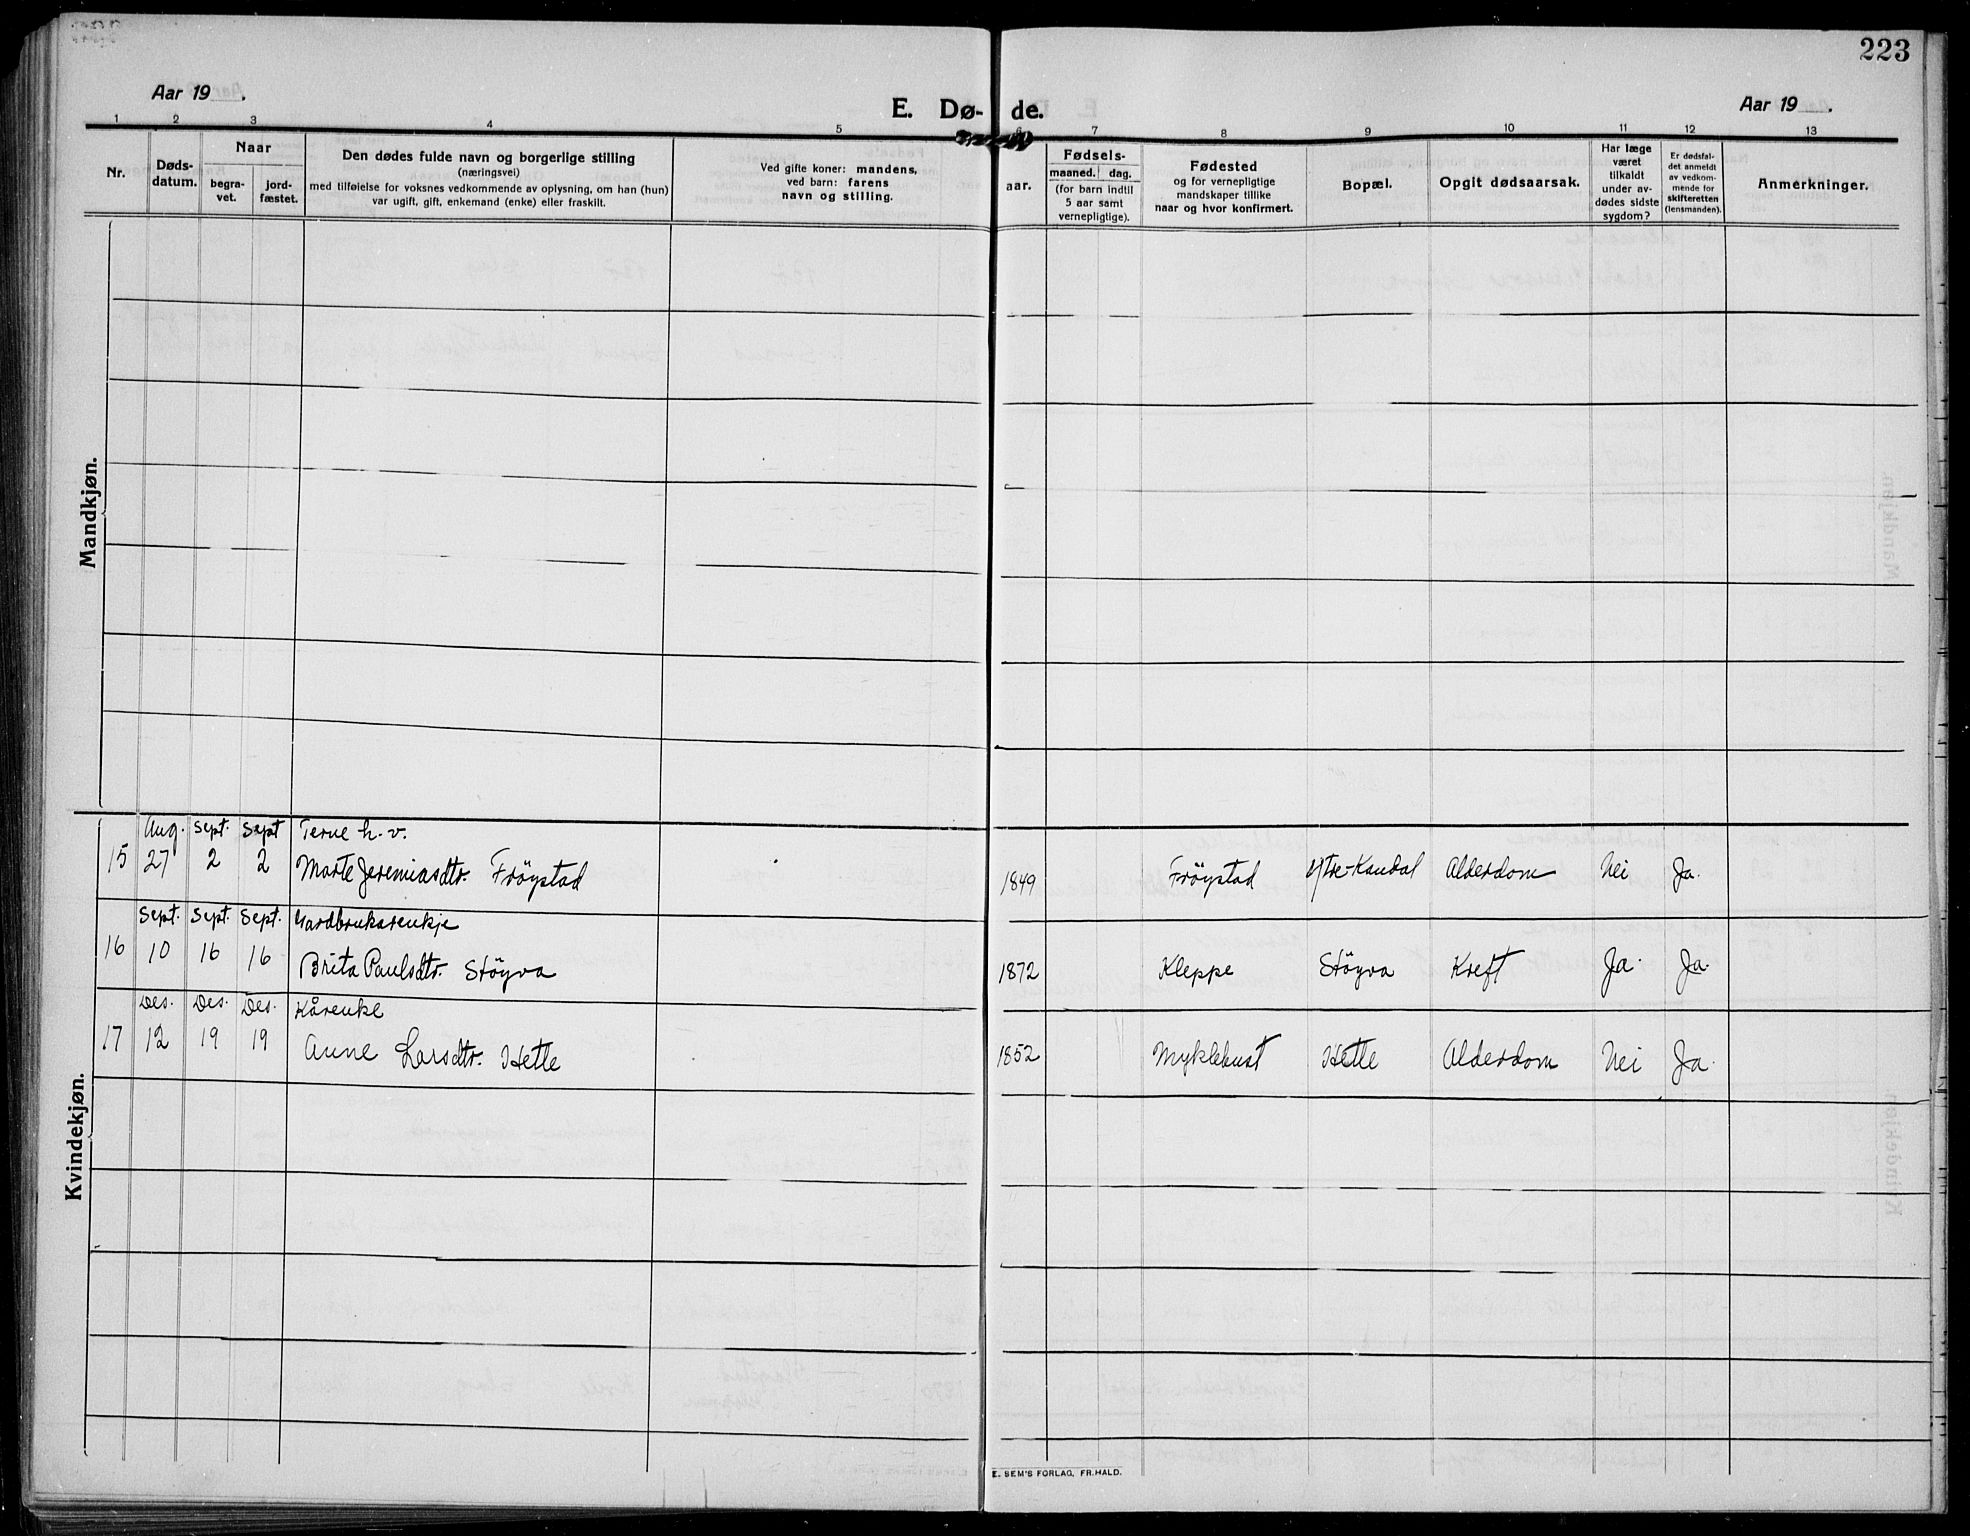 223
Aar 19 .
E. Dø- de.
Aar 19 .
1 2 3 4 5 6 7 8 9 10 11 12 13
Nr.
Døds-
datum.
Naar
begra-
vet.
jord-
fæstet.
Den dødes fulde navn og borgerlige stilling
(næringsvei)
med tilføielse for voksnes vedkommende av oplysning, om han (hun)
var ugift, gift, enkemand (enke) eller fraskilt.
Ved gifte koner: mandens,
ved barn: farens
navn og stilling.
aar.
Fødsels-
maaned. dag.
(for barn indtil
5 aar samt
vernepligtige).
Fødested
og for vernepligtige
mandskaper tillike
naar og hvor konfirmert.
Bopæl.
Opgit dødsaarsak.
Har læge
været
tilkaldt
under av-
dødes sidste
sygdom?
Er dødsfal-
det anmeldt
av vedkom-
mende for
skifteretten
(lensmanden).
Anmerkninger.
Mandkjøn.
Kvindekjøn.
Aug. Sept. Sept Terne h.v.
15 27 2 2 Marte Jeremiasdtr. Fröystad 1849 Fröystad Ytre-Kandal Alderdom Nei Ja.
Sept. Sept. Sept. Gardbrukarenkje
16 10 16 16 Brita Paulsdtr. Stöyva 1872 Kleppe Stöyva Kreft Ja. Ja.
Des. Des. Des. Kårenke
17 12 19 19 Anne Larsdtr. Hetle 1852 Myklebust Hetle Alderdom Nei Ja.
E. SEM'S FORLAG, FR.HALD.